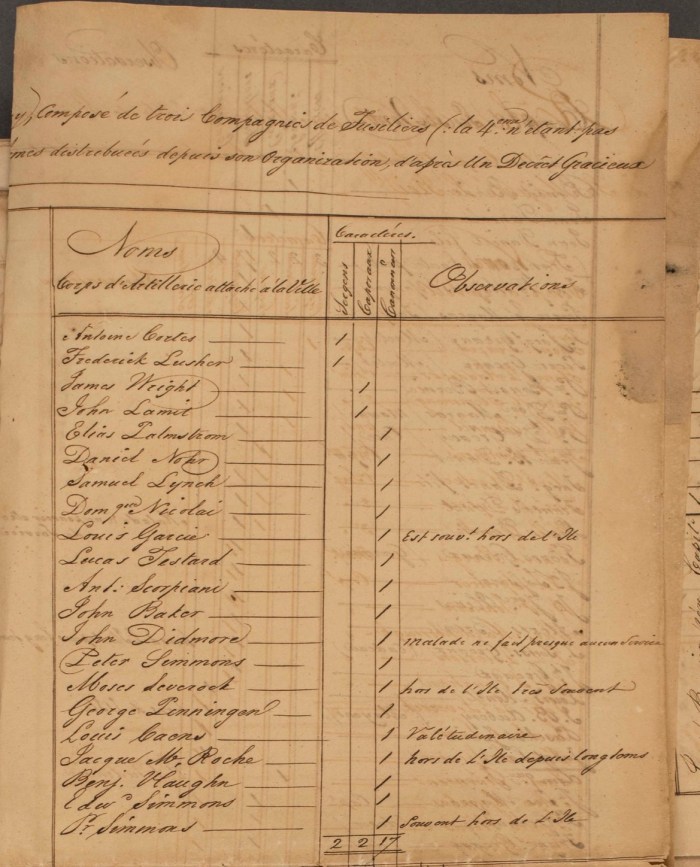 Composé de trois Compagnies de Fusiliers (: la 4.eme n'etant pas
mes distribuées depuis son Organization, d'après Un Decrèt Gracieux
Noms
Corps d'Artillerie attaché à la Ville
Caractéres.
Sergens
Caporaux
Canonier
Observations
Antoine Cortes 1
Frederick Lusher 1
James Wright 1
John Lamit 1
Elias Palmstrom 1
Daniel Nohr 1
Samuel Lynch 1
Dom.que Nicolai 1
Louis Garcie 1 Est souv.t hors de l'Ile
Lucas Testard 1
Ant: Scorpiani 1
John Baker 1
John Didmore 1 malade ne fait presque aucun Service
Peter Simmons 1
Moses Leverock 1 hors de l'Ile très souvent
George Penningen 1
Louis Caens 1 Valétudinaire
Jacque M. Roche 1 hors de L'Ile depuis longtems
Benj. Vaughn 1
Edw.d Simmons 1
P.r Simmons 1 Souvent hors de L'Ile
2 2 17